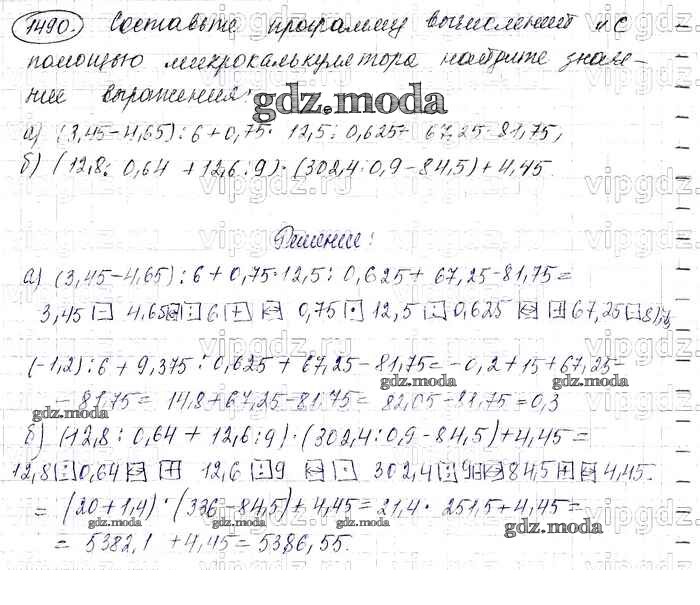 1490. Составьте программу вычислений и с
помощью микрокалькулятора найдите значе-
ние выражения:
gdz.moda
а) (3,45-4,65):6+0,75·12,5:0,625+67,25-81,75;
б) (12,8:0,64+12,6:9)·(302,4:0,9-84,5)+4,45.
Решение:
а) (3,45-4,65):6+0,75·12,5:0,625+67,25-81,75=
3,45 - 4,65 = : 6 + 0,75 · 12,5 : 0,625 = + 67,25 - 81,75
(-1,2):6+9,375:0,625+67,25-81,75=-0,2+15+67,25-
-81,75=14,8+67,25-81,75=82,05-81,75=0,3
gdz.moda gdz.moda gdz.moda
б) (12,8:0,64+12,6:9)·(302,4:0,9-84,5)+4,45=
12,8 : 0,64 + 12,6 : 9 · 302,4 : 9 84,5 + 4,45.
=(20+1,4)·(336-84,5)+4,45=21,4·251,5+4,45=
gdz.moda gdz.moda gdz.moda gdz.moda
=5382,1+4,45=5386,55.